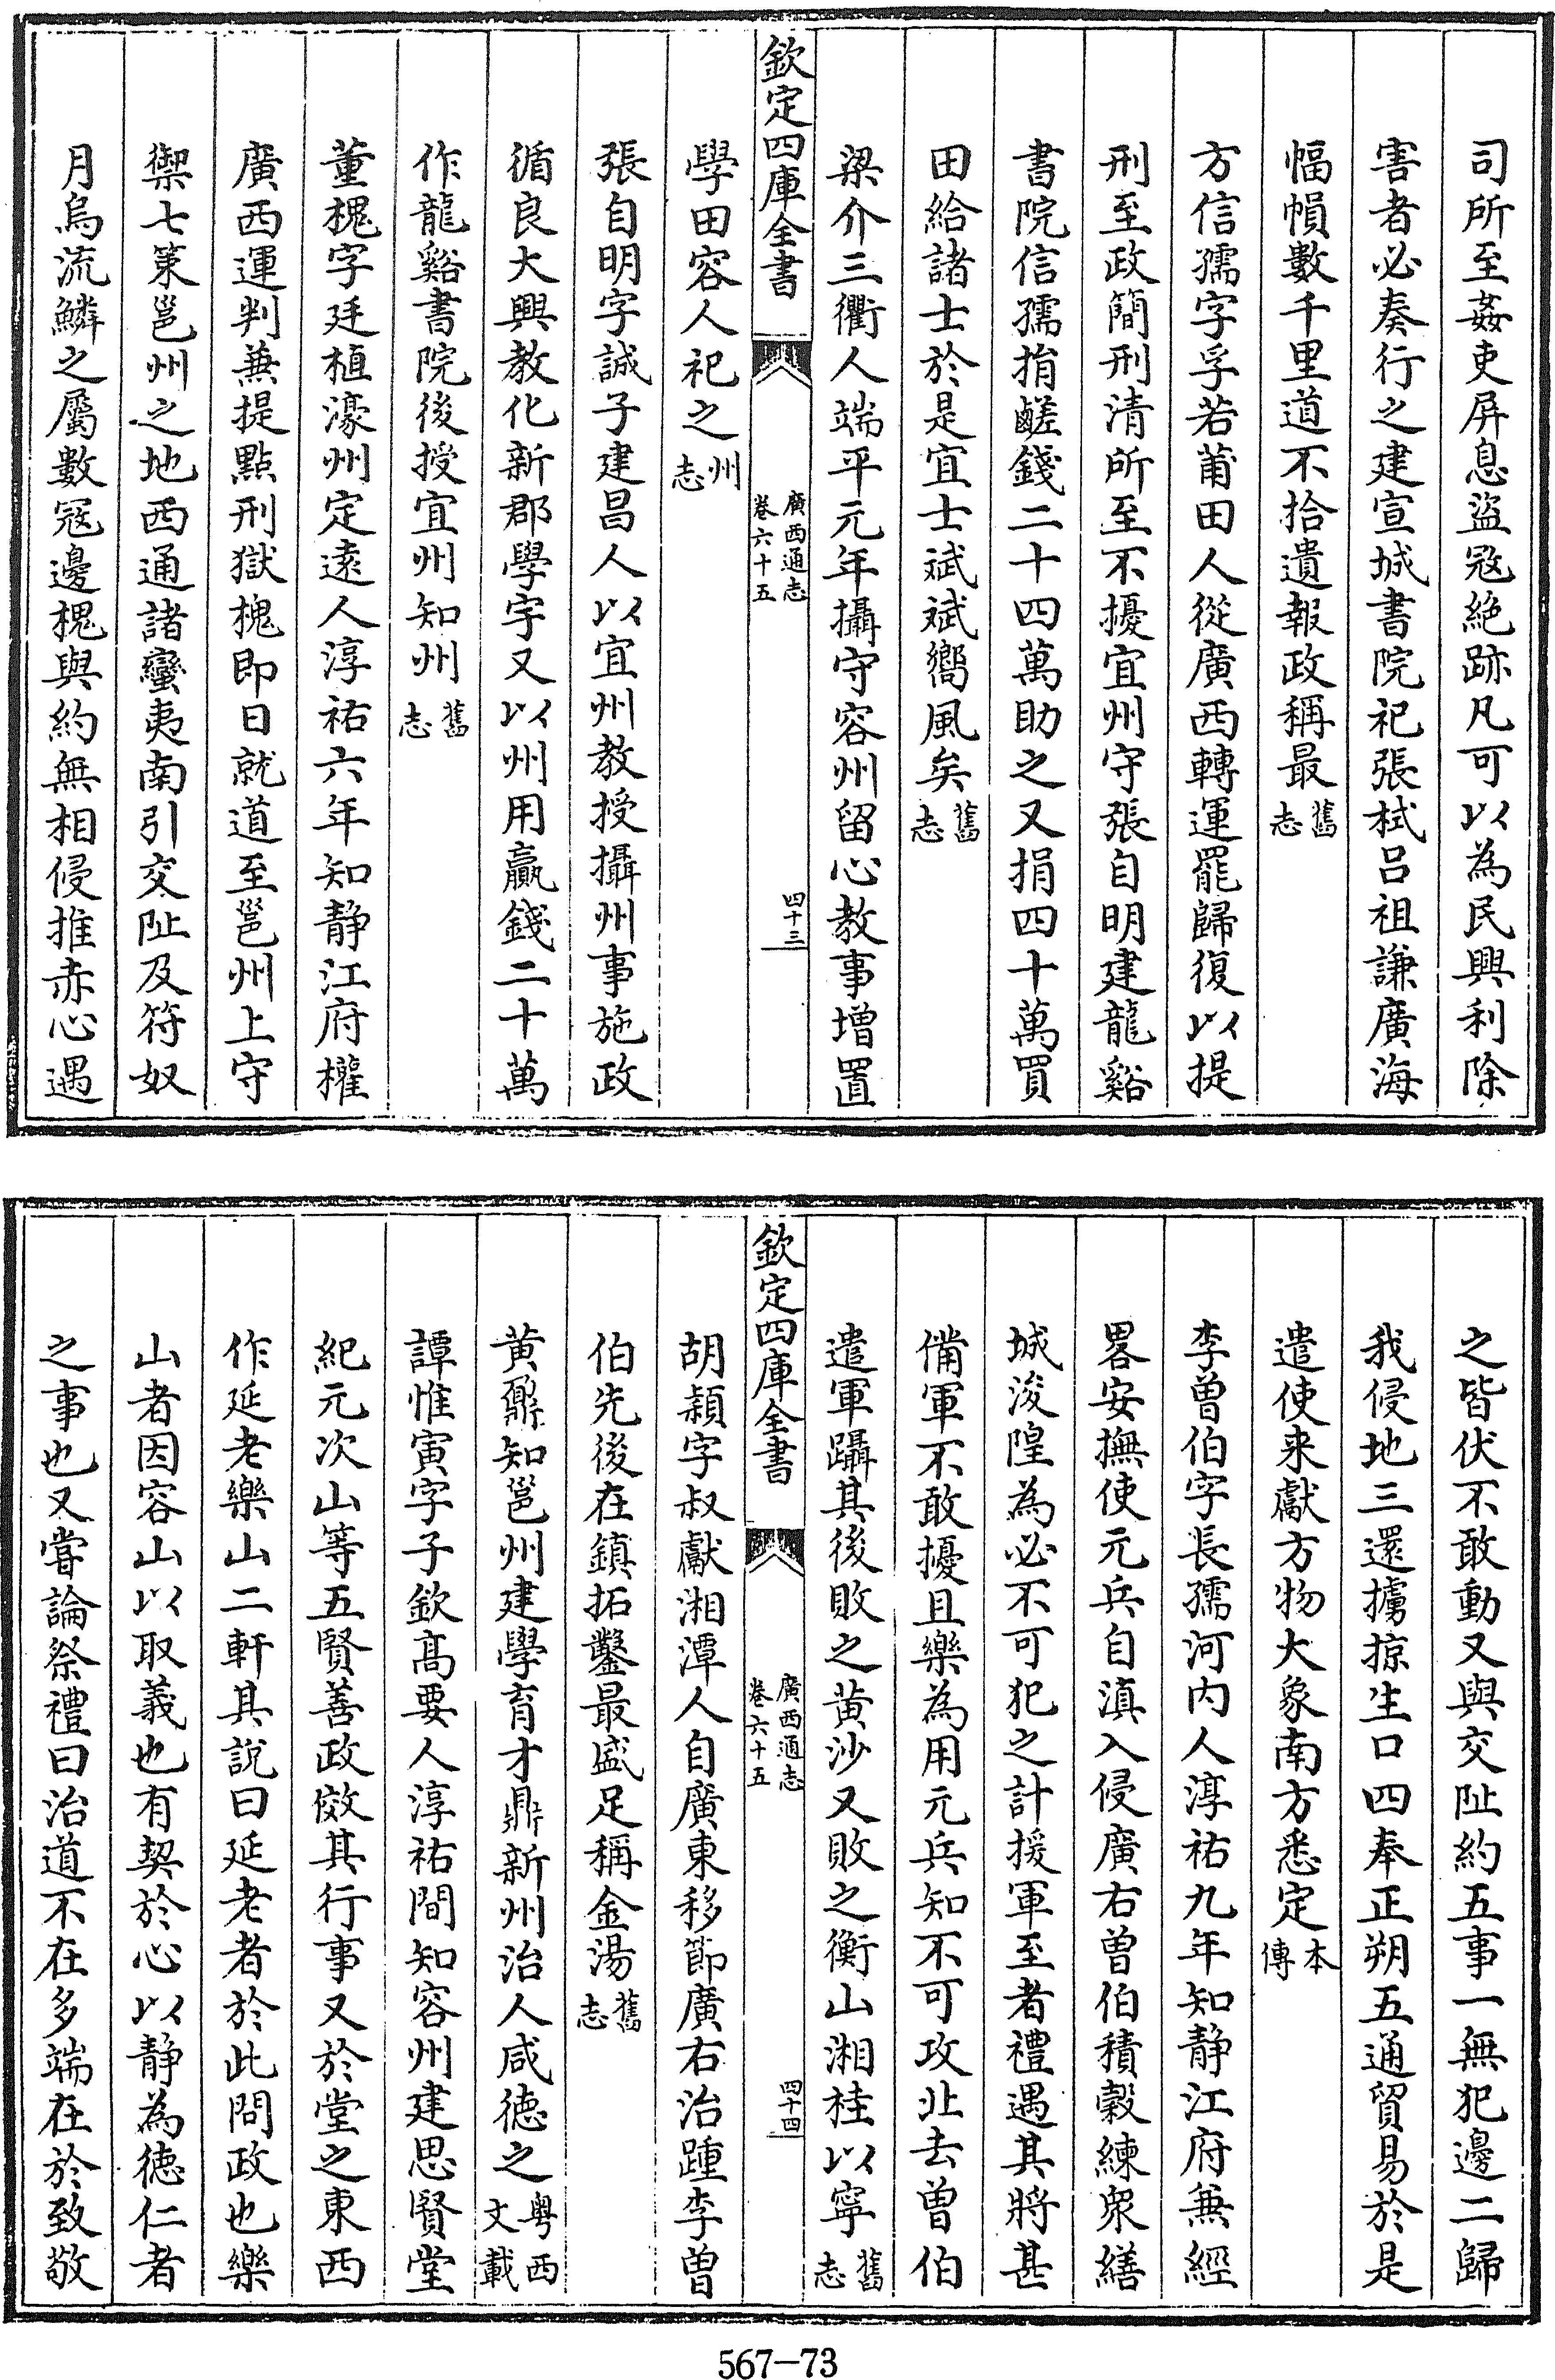 司所至姦吏屏息盜冦絶跡凡可以為民興利除
害者必奏行之建宣城書院祀張栻吕祖謙廣海
幅幀數千里道不拾遺報政稱最舊志
方信孺字孚若莆田人從廣西轉運罷歸復以提
刑至政簡刑清所至不擾宜州守張自明建龍谿
書院信孺捐鹺錢二十四萬助之又捐四十萬買
田給諸士於是宜士斌斌嚮風矣舊志
梁介三衢人端平元年攝守容州留心教事增置
欽定四庫全書
廣西通志
卷六十五
四十三
學田容人祀之州志
張自明字誠子建昌人以宜州教授攝州事施政
循良大興教化新郡學宇又以州用贏錢二十萬
作龍谿書院後授宜州知州舊志
董槐字廷植濠州定遠人淳祐六年知静江府權
廣西運判兼提點刑獄槐即日就道至邕州上守
禦七策邕州之地西通諸蠻夷南引交阯及符奴
月烏流鱗之屬數冦邊槐與約無相侵推赤心遇
之皆伏不敢動又與交阯約五事一無犯邊二歸
我侵地三還擄掠生口四奉正朔五通貿易於是
遣使来獻方物大象南方悉定本傳
李曽伯字長孺河内人淳祐九年知静江府兼經
畧安撫使元兵自滇入侵廣右曽伯積糓練衆繕
城浚隍為必不可犯之計援軍至者禮遇其將甚
備軍不敢擾且樂為用元兵知不可攻北去曽伯
遣軍躡其後敗之黄沙又敗之衡山湘桂以寧舊志
欽定四庫全書
廣西通志
卷六十五
四十四
胡頴字叔獻湘潭人自廣東移節廣右治踵李曽
伯先後在鎮拓鑿最盛足稱金湯舊志
黄鼐知邕州建學育才鼎新州治人咸徳之粤西文載
譚惟寅字子欽髙要人淳祐間知容州建思賢堂
紀元次山等五賢善政倣其行事又於堂之東西
作延老樂山二軒其說曰延老者於此問政也樂
山者因容山以取義也有契於心以静為徳仁者
之事也又甞論祭禮曰治道不在多端在於致敬
567-73